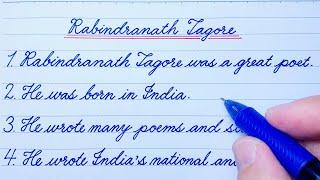 Rabindranath Tagore
1. Rabindranath Tagore was a great poet.
2. He was born in India.
3. He wrote many poems and
4. He wrote India's national